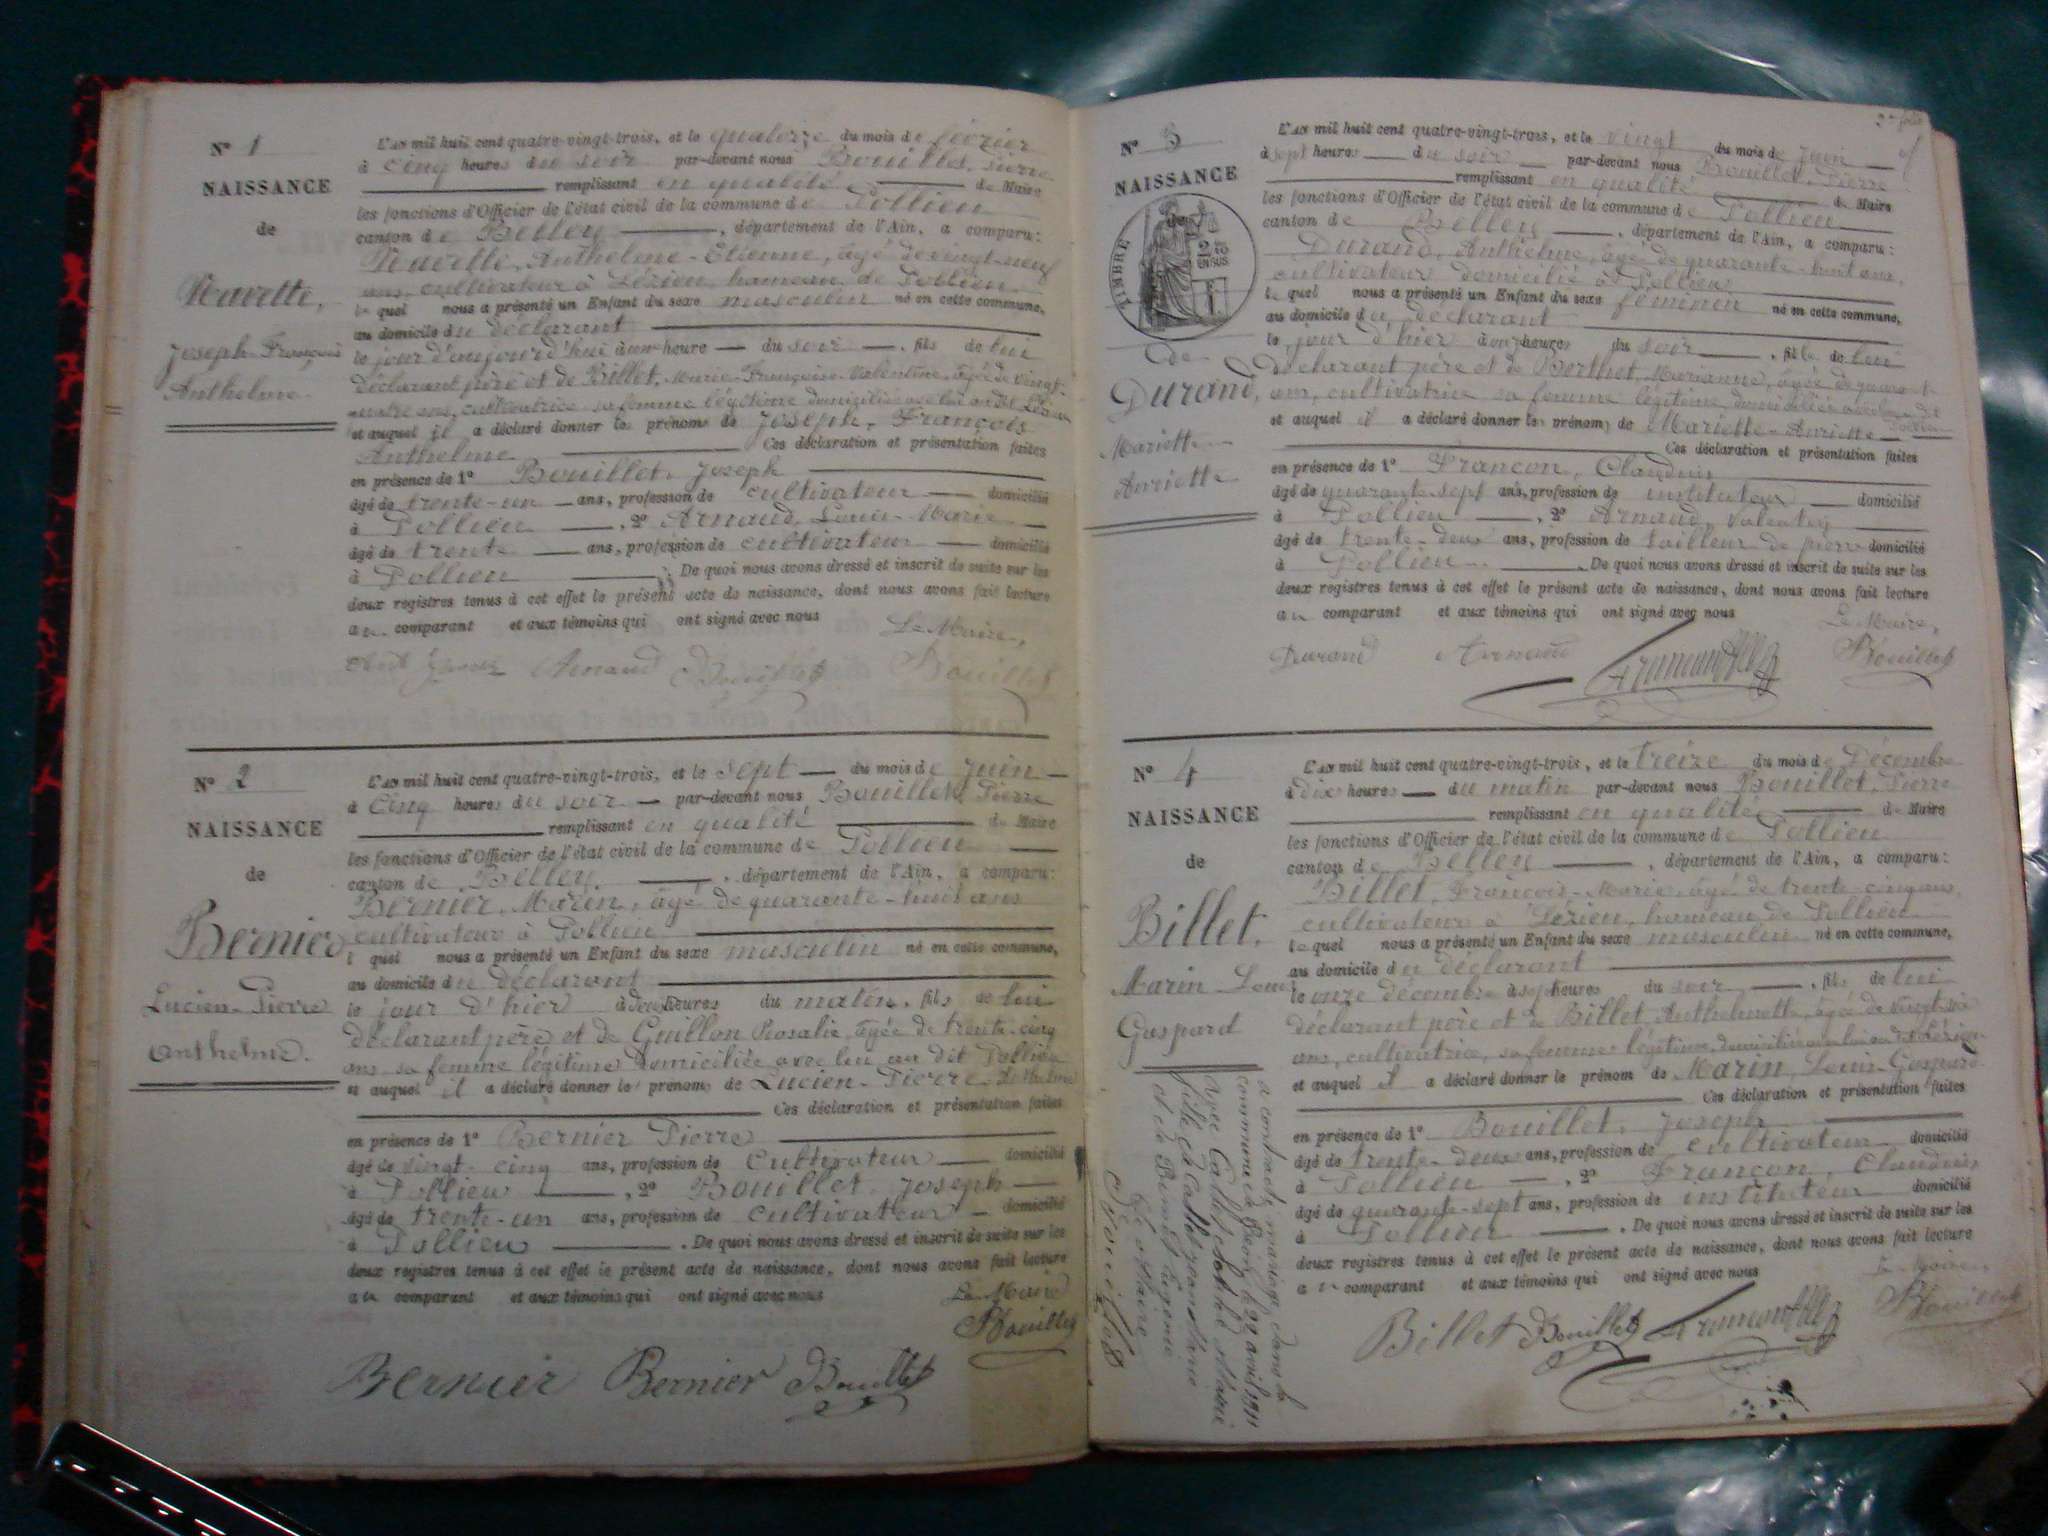 N° 1
NAISSANCE
de
Navette,
Joseph François
Anthelme
L'AN mil huit cent quatre-vingt-trois, et le quatorze du mois de février
à cinq heures du soir par-devant nous Bouillet, Pierre
remplissant en qualité de Maire
les fonctions d'Officier de l'état civil de la commune de Pollieu
canton de Belley, département de l'Ain, a comparu:
Navette, Anthelme-Etienne, âgé de vingt-neuf
ans, cultivateur à Lézieu, hameau de Pollieu
le quel nous a présenté un Enfant du sexe masculin né en cette commune,
au domicile du déclarant
le jour d'aujourd'hui à une heure du soir, fils de lui
déclarant père et de Billet, Marie-Françoise-Valentine, âgée de vingt-
quatre ans, cultivatrice sa femme légitime domiciliée avec lui au dit Lézieu
et auquel il a déclaré donner les prénoms de Joseph, François
Anthelme Ces déclaration et présentation faites
en présence de 1° Bouillet, Joseph
âgé de trente-un ans, profession de cultivateur domicilié
à Pollieu, 2° Arnaud, Louis-Marie
âgé de trente ans, profession de cultivateur domicilié
à Pollieu. De quoi nous avons dressé et inscrit de suite sur les
deux registres tenus à cet effet le présent acte de naissance, dont nous avons fait lecture
au comparant et aux témoins qui ont signé avec nous
Le Maire,
Arnaud Bouillet Bouillet
N° 2
NAISSANCE
de
Bernier,
Lucien-Pierre
Anthelme.
L'AN mil huit cent quatre-vingt-trois, et le sept du mois de juin
à cinq heures du soir par-devant nous Bouillet, Pierre
remplissant en qualité de Maire
les fonctions d'Officier de l'état civil de la commune de Pollieu
canton de Belley, département de l'Ain, a comparu:
Bernier, Marin, âgé de quarante-huit ans
cultivateur à Pollieu
l quel nous a présenté un Enfant du sexe masculin né en cette commune,
au domicile du déclarant
le jour d'hier à heures du matin, fils de lui
déclarant père et de Guillon Rosalie, âgée de trente-cinq
ans sa femme légitime domiciliée avec lui au dit Pollieu
et auquel il a déclaré donner les prénoms de Lucien-Pierre-Anthelme
Ces déclaration et présentation faites
en présence de 1° Bernier Pierre
âgé de vingt-cinq ans, profession de cultivateur domicilié
à Pollieu, 2° Bouillet, Joseph
âgé de trente-un ans, profession de cultivateur domicilié
à Pollieu. De quoi nous avons dressé et inscrit de suite sur les
deux registres tenus à cet effet le présent acte de naissance, dont nous avons fait lecture
au comparant et aux témoins qui ont signé avec nous
Le Maire
Bouillet
Bernier Bernier Bouillet
2e folio
N° 3
NAISSANCE
de
TIMBRE
de
Durand,
Mariette
Anriette
L'AN mil huit cent quatre-vingt-trois, et le vingt du mois de juin
à sept heures du soir par-devant nous Bouillet, Pierre
remplissant en qualité de Maire
les fonctions d'Officier de l'état civil de la commune de Pollieu
canton de Belley, département de l'Ain, a comparu:
Durand, Anthelme, âgé de quarante-huit ans,
cultivateur domicilié à Pollieu
le quel nous a présenté un Enfant du sexe féminin né en cette commune,
au domicile du déclarant
le jour d'hier à onze heures du soir, fille de lui
déclarant père et de Berthet, Marianne, âgée de quarante
ans, cultivatrice sa femme légitime domiciliée avec lui au dit Pollieu
et auquel il a déclaré donner les prénoms de Mariette-Anriette
Ces déclaration et présentation faites
en présence de 1° Francon, Claudius
âgé de quarante-sept ans, profession de instituteur domicilié
à Pollieu, 2° Arnaud, Valentin
âgé de trente-deux ans, profession de tailleur de pierre domicilié
à Pollieu. De quoi nous avons dressé et inscrit de suite sur les
deux registres tenus à cet effet le présent acte de naissance, dont nous avons fait lecture
au comparant et aux témoins qui ont signé avec nous
Le Maire,
Durand Arnaud Bouillet
N° 4
NAISSANCE
de
Billet,
Marin Louis
Gaspard
L'AN mil huit cent quatre-vingt-trois, et le treize du mois de Décembre
à dix heures du matin par-devant nous Bouillet, Pierre
remplissant en qualité de Maire
les fonctions d'Officier de l'état civil de la commune de Pollieu
canton de Belley, département de l'Ain, a comparu:
Billet, François-Marie, âgé de trente-cinq ans,
cultivateur à Lézieu, hameau de Pollieu
le quel nous a présenté un Enfant du sexe masculin né en cette commune,
au domicile du déclarant
le onze décembre à sept heures du soir, fils de lui
déclarant père et de Billet Anthelmette, âgée de vingt-six
ans, cultivatrice, sa femme légitime, domiciliée avec lui au dit Lézieu
et auquel il a déclaré donner le prénom de Marin, Louis-Gaspard
Ces déclaration et présentation faites
en présence de 1° Bouillet, Joseph
âgé de trente-deux ans, profession de cultivateur domicilié
à Pollieu, 2° Francon, Claudius
âgé de quarante-sept ans, profession de instituteur domicilié
à Pollieu. De quoi nous avons dressé et inscrit de suite sur les
deux registres tenus à cet effet le présent acte de naissance, dont nous avons fait lecture
au comparant et aux témoins qui ont signé avec nous
Le Maire,
Billet Bouillet Bouillet
a contracté mariage dans la
commune de le 22 avril 1911
avec Marie
fille de Jean Marie
et de Eugénie
Le Maire
Bouillet